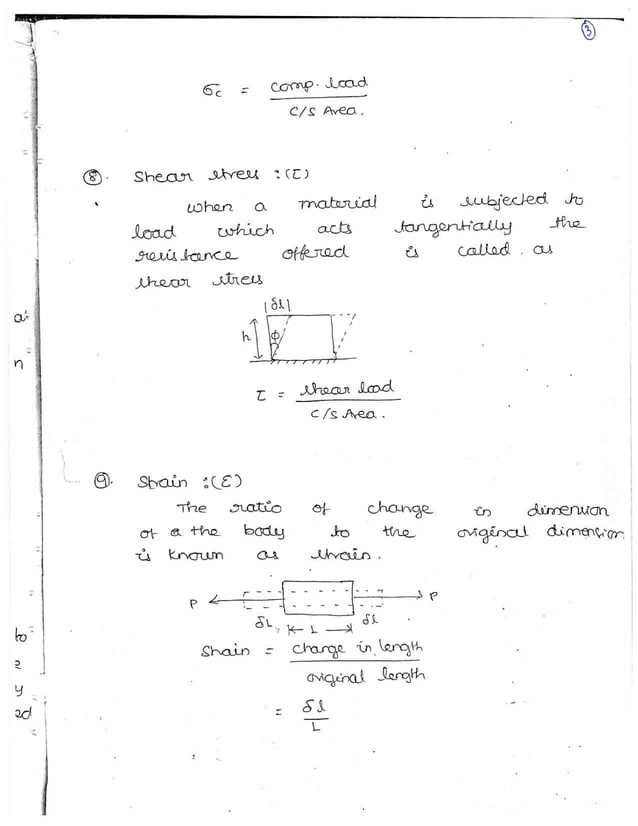 3
σc = comp. load
C/S Area.
8. Shear stress :(τ)
when a material is subjected to
load which acts tangentially the
resistance offered is called as
shear stress
δl
at
h φ
n
τ = shear load
C/S Area.
9. Strain :(ε)
The ratio of change in dimension
of a the body to the original dimension
is known as strain.
P P
δL L δl
to
Strain = change in length
original length
y
= δl
L
ed